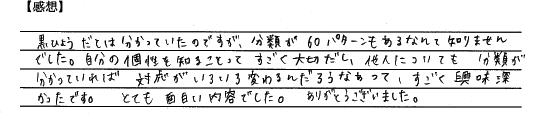 【感想】
黒ひょうだとは分かっていたのですが、分類が60パターンもあるなんて知りません
でした。自分の個性を知ることってすごく大切だし、他人についても分類が
分かっていれば対応がいろいろ変わるんだろうなあって、すごく興味深
かったです。とても面白い内容でした。ありがとうございました。